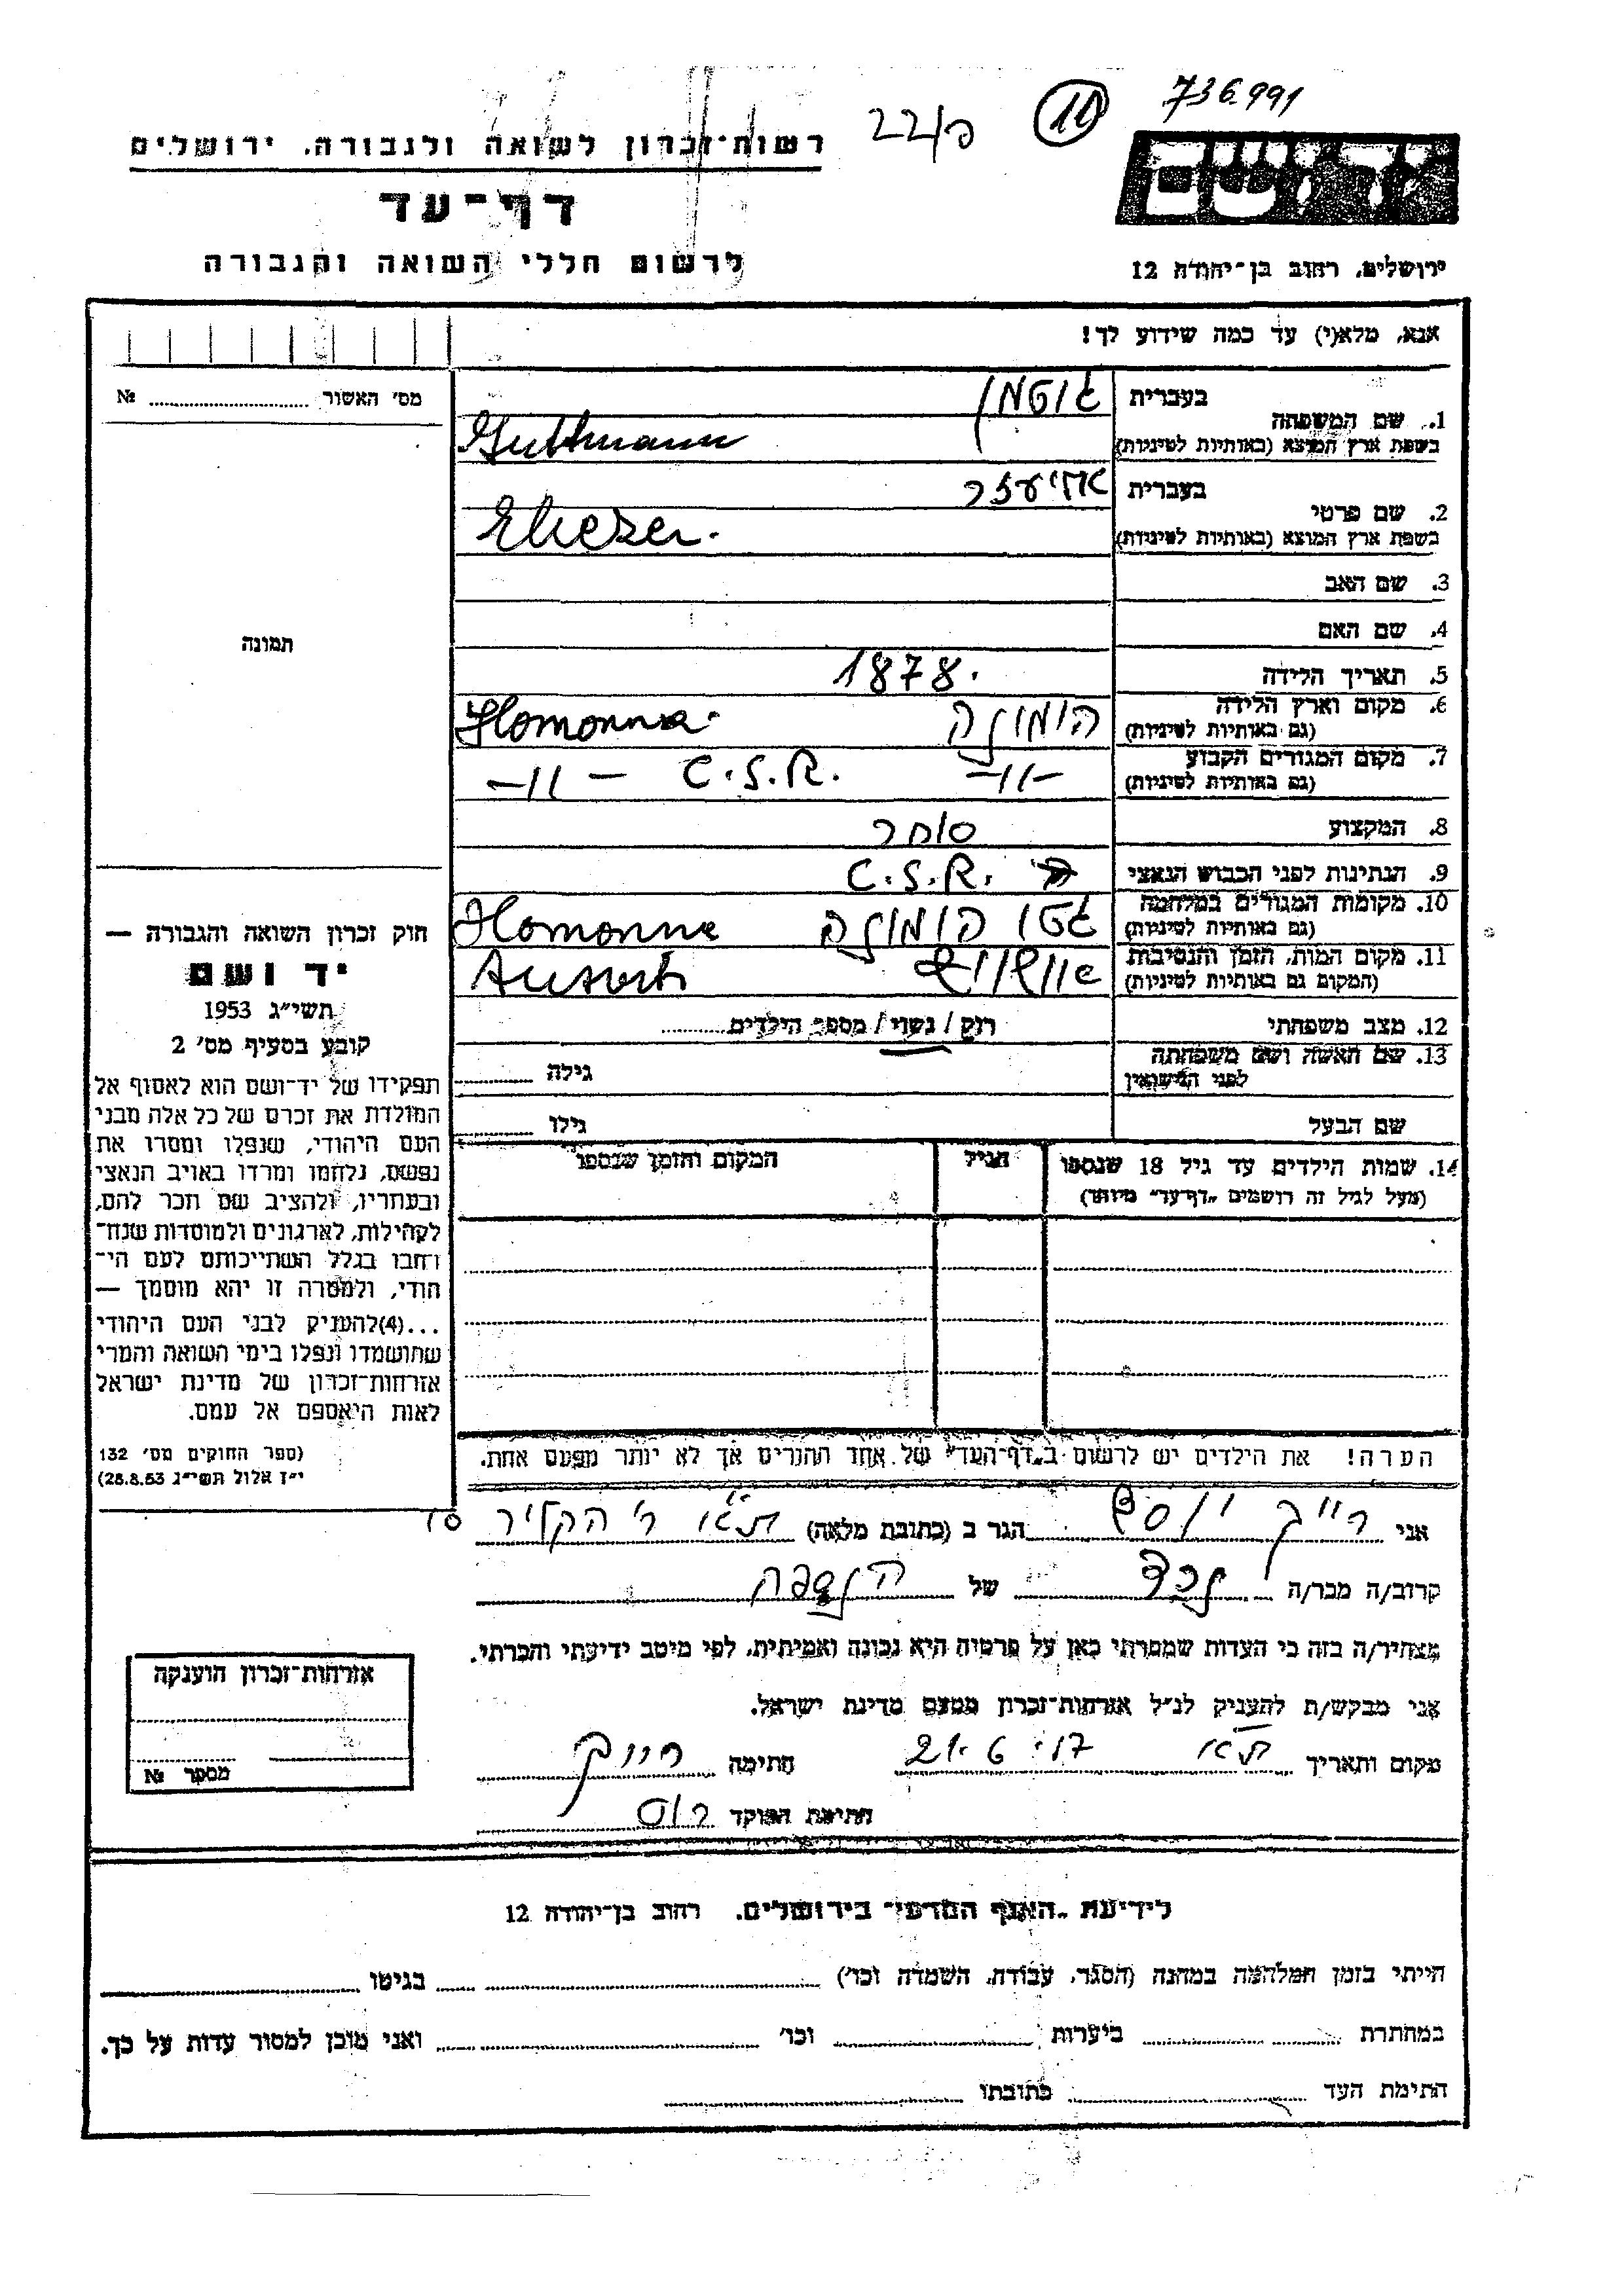 736.991
11
22/כ
רשות־זכרון לשואה ולגבורה, ירושלים
יד ושם
דף־עד
לרשום חללי השואה והגבורה
ירושלים, רחוב בן־יהודה 12
אנא, מלא(י) עד כמה שידוע לך!
מס׳ האשור № 
1. שם המשפחה בעברית גוטמן
בשפת ארץ המוצא (באותיות לטיניות) Guttmann
2. שם פרטי בעברית אליעזר
בשפת ארץ המוצא (באותיות לטיניות) Eliezer.
3. שם האב
4. שם האם
תמונה
5. תאריך הלידה 1878.
6. מקום וארץ הלידה (גם באותיות לטיניות) הומונה Homonna.
7. מקום המגורים הקבוע (גם באותיות לטיניות) -11- C.S.R. -11-
8. המקצוע סוחר
9. הנתינות לפני הכבוש הנאצי C.S.R.
10. מקומות המגורים במלחמה (גם באותיות לטיניות) גטו הומונה Homonna
11. מקום המות, הזמן והנסיבות (המקום גם באותיות לטיניות) אושוויץ
12. מצב משפחתי רוק / נשוי / מספר הילדים
13. שם האשה ושם משפחתה לפני הנישואין גילה
שם הבעל גילו
14. שמות הילדים עד גיל 18 שנספו הגיל המקום והזמן שנספו
(מעל לגיל זה רושמים „דף־עד” מיוחד)
הערה! את הילדים יש לרשום ב„דף־העד” של אחד ההורים אך לא יותר מפעם אחת.
חוק זכרון השואה והגבורה —
יד ושם
תשי״ג 1953
קובע בסעיף מס׳ 2
תפקידו של יד־ושם הוא לאסוף אל
המולדת את זכרם של כל אלה מבני
העם היהודי, שנפלו ומסרו את
נפשם, נלחמו ומרדו באויב הנאצי
ובעוזריו, ולהציב שם וזכר להם,
לקהילות, לארגונים ולמוסדות שנח־
רבו בגלל השתייכותם לעם הי־
הודי, ולמטרה זו יהא מוסמך —
...(4)להעניק לבני העם היהודי
שהושמדו ונפלו בימי השואה והמרי
אזרחות־זכרון של מדינת ישראל
לאות היאספם אל עמם.
(ספר החוקים מס׳ 132
י״ז אלול תשי״ג 28.8.53)
אני רייך יוסף הגר ב (כתובת מלאה) ת״א ר׳ הקליר 10
קרוב/ה מכר/ה נכד של הנספה
מצהיר/ה בזה כי העדות שמסרתי כאן על פרטיה היא נכונה ואמיתית, לפי מיטב ידיעתי והכרתי.
אני מבקש/ת להעניק לנ״ל אזרחות־זכרון מטעם מדינת ישראל.
מקום ותאריך ת״א חתימה רייך
חתימת הפוקד רוס
אזרחות־זכרון הוענקה
מספר №
לידיעת „האגף המדעי” בירושלים, רחוב בן־יהודה 12
הייתי בזמן המלחמה במחנה (הסגר, עבודה, השמדה וכו׳) בגיטו
במחתרת ביערות וכו׳ ואני מוכן למסור עדות על כך.
חתימת העד כתובתו